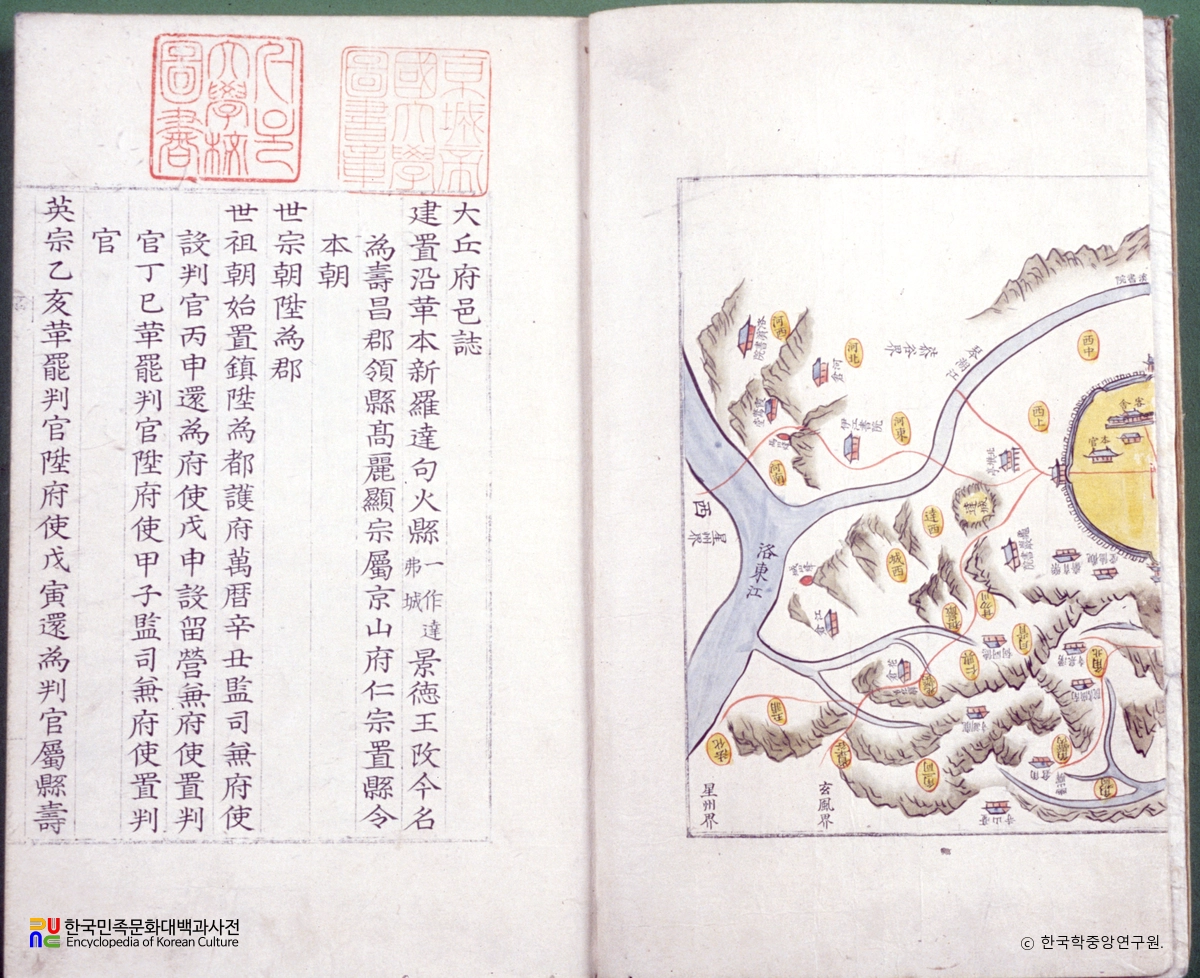 大丘府邑誌
建置沿革本新羅達句火縣一作達弗城景德王改今名
為壽昌郡領縣高麗顯宗屬京山府仁宗置縣令
本朝
世宗朝陞為郡
世祖朝始置鎮陞為都護府萬曆辛丑監司兼府使
設判官丙申還為府使戊申設留營兼府使置判
官丁巳革罷判官陞府使甲子監司兼府使置判
官
英宗乙亥革罷判官陞府使戊寅還為判官屬縣壽
京城帝國大學圖書章
서울大學校圖書
西中
西上
河西
河北
河倉
河東
河南
伊江書院
琴湖江
客舍
達西
達城
城西
江倉
洛東江
西
星州界
星州界
玄風界
한국민족문화대백과사전
Encyclopedia of Korean Culture
© 한국학중앙연구원.